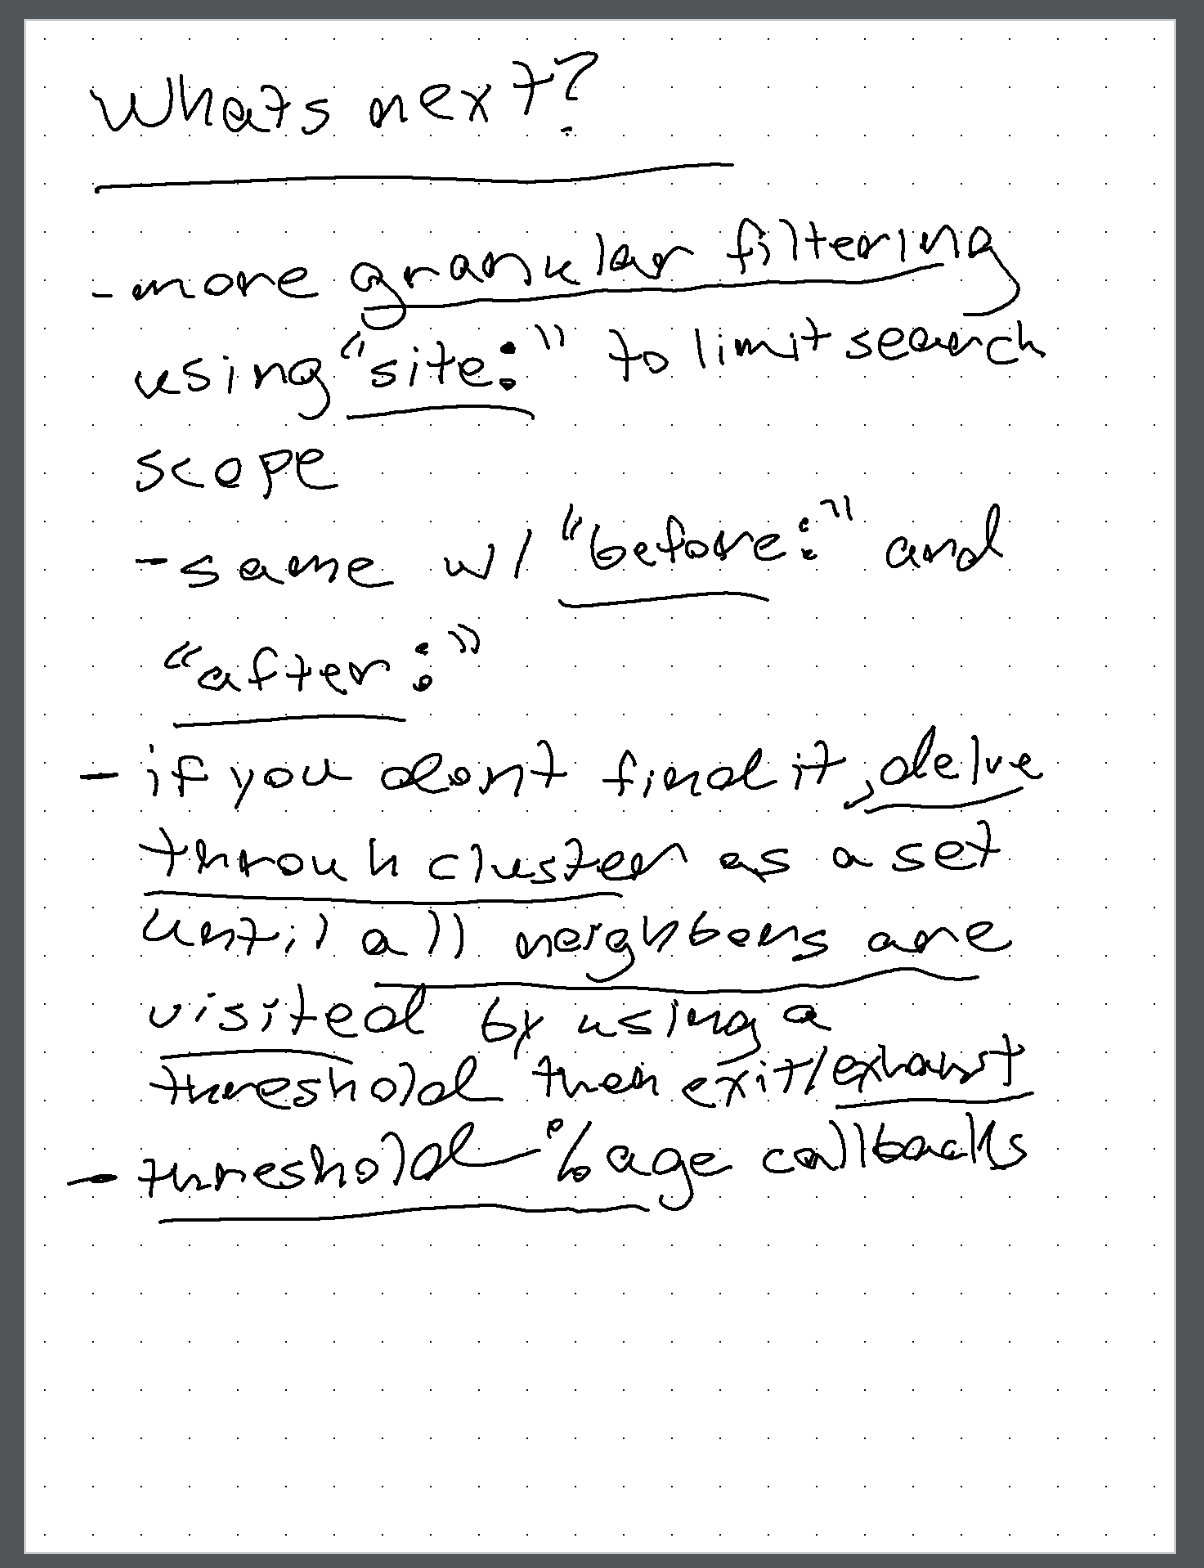 Whats next?
- more granular filtering
using "site:" to limit search
scope
- same w/ "before:" and
"after:"
- if you dont find it, delve
throuh cluster as a set
until all neighbors are
visited by using a
threshold then exit/exhaust
- threshold %age callbacks